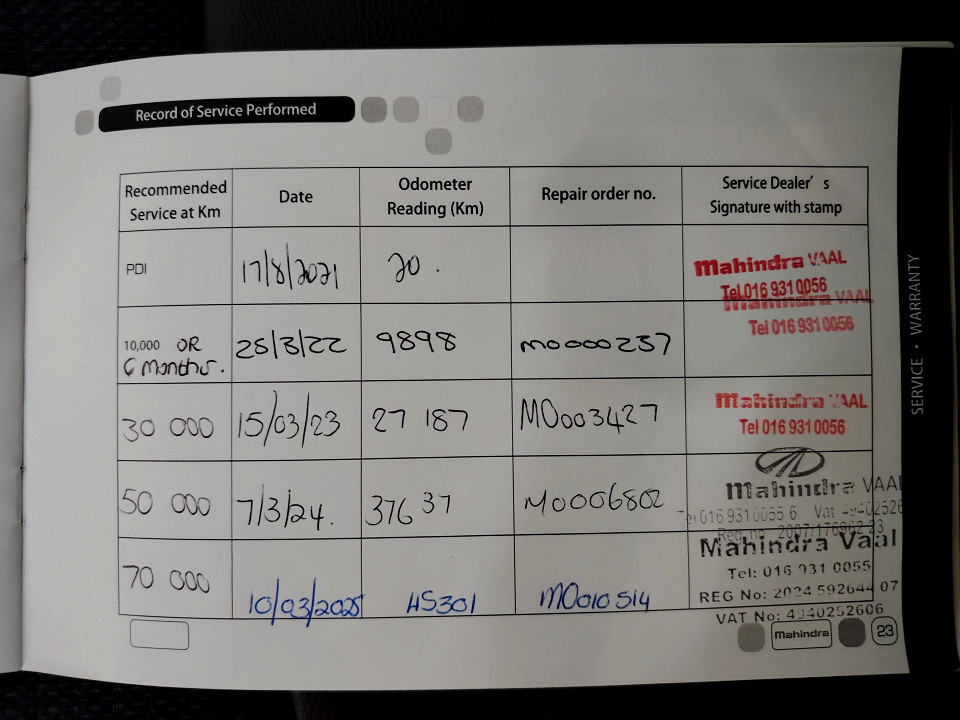 Record of Service Performed
Recommended Service at Km
Date
Odometer Reading (Km)
Repair order no.
Service Dealer's Signature with stamp
PDI
17/8/2021
20.
Mahindra VAAL
Tel.016 931 0056
10,000 OR 6 Months.
25/3/22
9898
M0000237
Mahindra VAAL
Tel 016 931 0056
30 000
15/03/23
27 187
M0003427
Mahindra VAAL
Tel 016 931 0056
50 000
7/3/24.
37637
M0006802
Mahindra VAAL
70 000
10/03/2025
45301
M0010514
Mahindra Vaal
Tel: 016 931 0055
REG No: 2024 592644 07
VAT No: 4940252606
SERVICE • WARRANTY
Mahindra
23